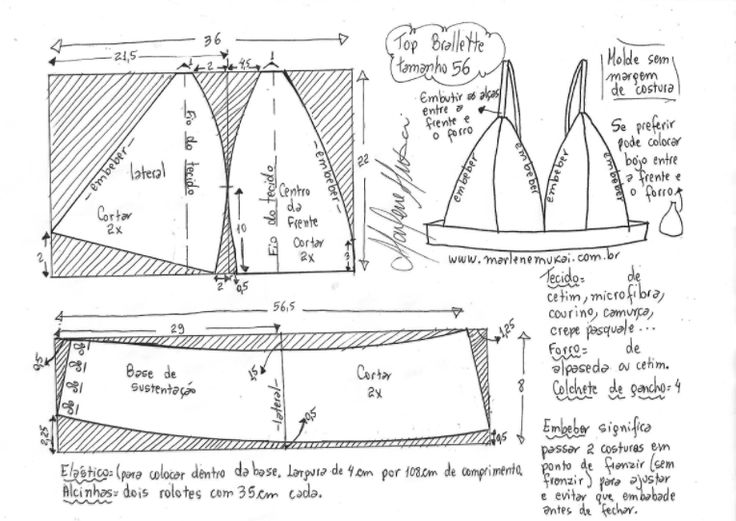 36
21,5
1
2
4,5
1
Fio do tecido
lateral
embeber
Cortar
2x
2
22
Fio do tecido
Centro
da
Frente
Cortar
2x
embeber
10
3
2
0,5
Top Brallette
tamanho 56
Embutir as alças
entre a
frente e
o forro
embeber
embeber
embeber
embeber
Marlene Mukai
www.marlenemukai.com.br
Molde sem
margem
de costura
Se preferir
pode colocar
bojo entre
a frente e
o forro
56,5
29
1,25
0,5
Base de
sustentação
1,5
lateral
Cortar
2x
8
0,5
0,5
2,25
Tecido= de
cetim, microfibra,
courino, camurça,
crepe pasquale...
Forro= de
alpaseda ou cetim.
Colchete de gancho=4
Embeber significa
passar 2 costuras em
ponto de franzir (sem
franzir) para ajustar
e evitar que embabade
antes de fechar.
Elástico=(para colocar dentro da base. Largura de 4cm por 108cm de comprimento.
Alcinhas= dois rolotes com 35cm cada.